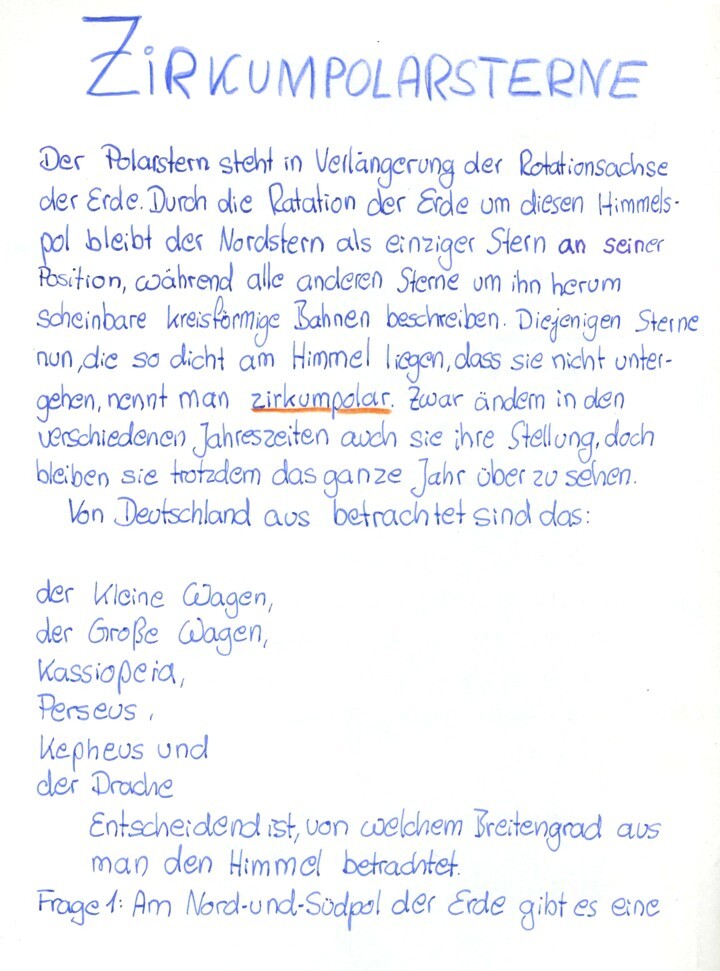 ZIRKUMPOLARSTERNE
Der Polarstern steht in Verlängerung der Rotationsachse
der Erde. Durch die Ratation der Erde um diesen Himmels-
pol bleibt der Nordstern als einziger Stern an seiner
Position, während alle anderen Sterne um ihn herum
scheinbare kreisförmige Bahnen beschreiben. Diejenigen Sterne
nun, die so dicht am Himmel liegen, dass sie nicht unter-
gehen, nennt man zirkumpolar. Zwar ändern in den
verschiedenen Jahreszeiten auch sie ihre Stellung, doch
bleiben sie trotzdem das ganze Jahr über zu sehen.
Von Deutschland aus betrachtet sind das:
der Kleine Wagen,
der Große Wagen,
Kassiopeia,
Perseus,
Kepheus und
der Drache
Entscheidend ist, von welchem Breitengrad aus
man den Himmel betrachtet.
Frage 1: Am Nord-und-Südpol der Erde gibt es eine